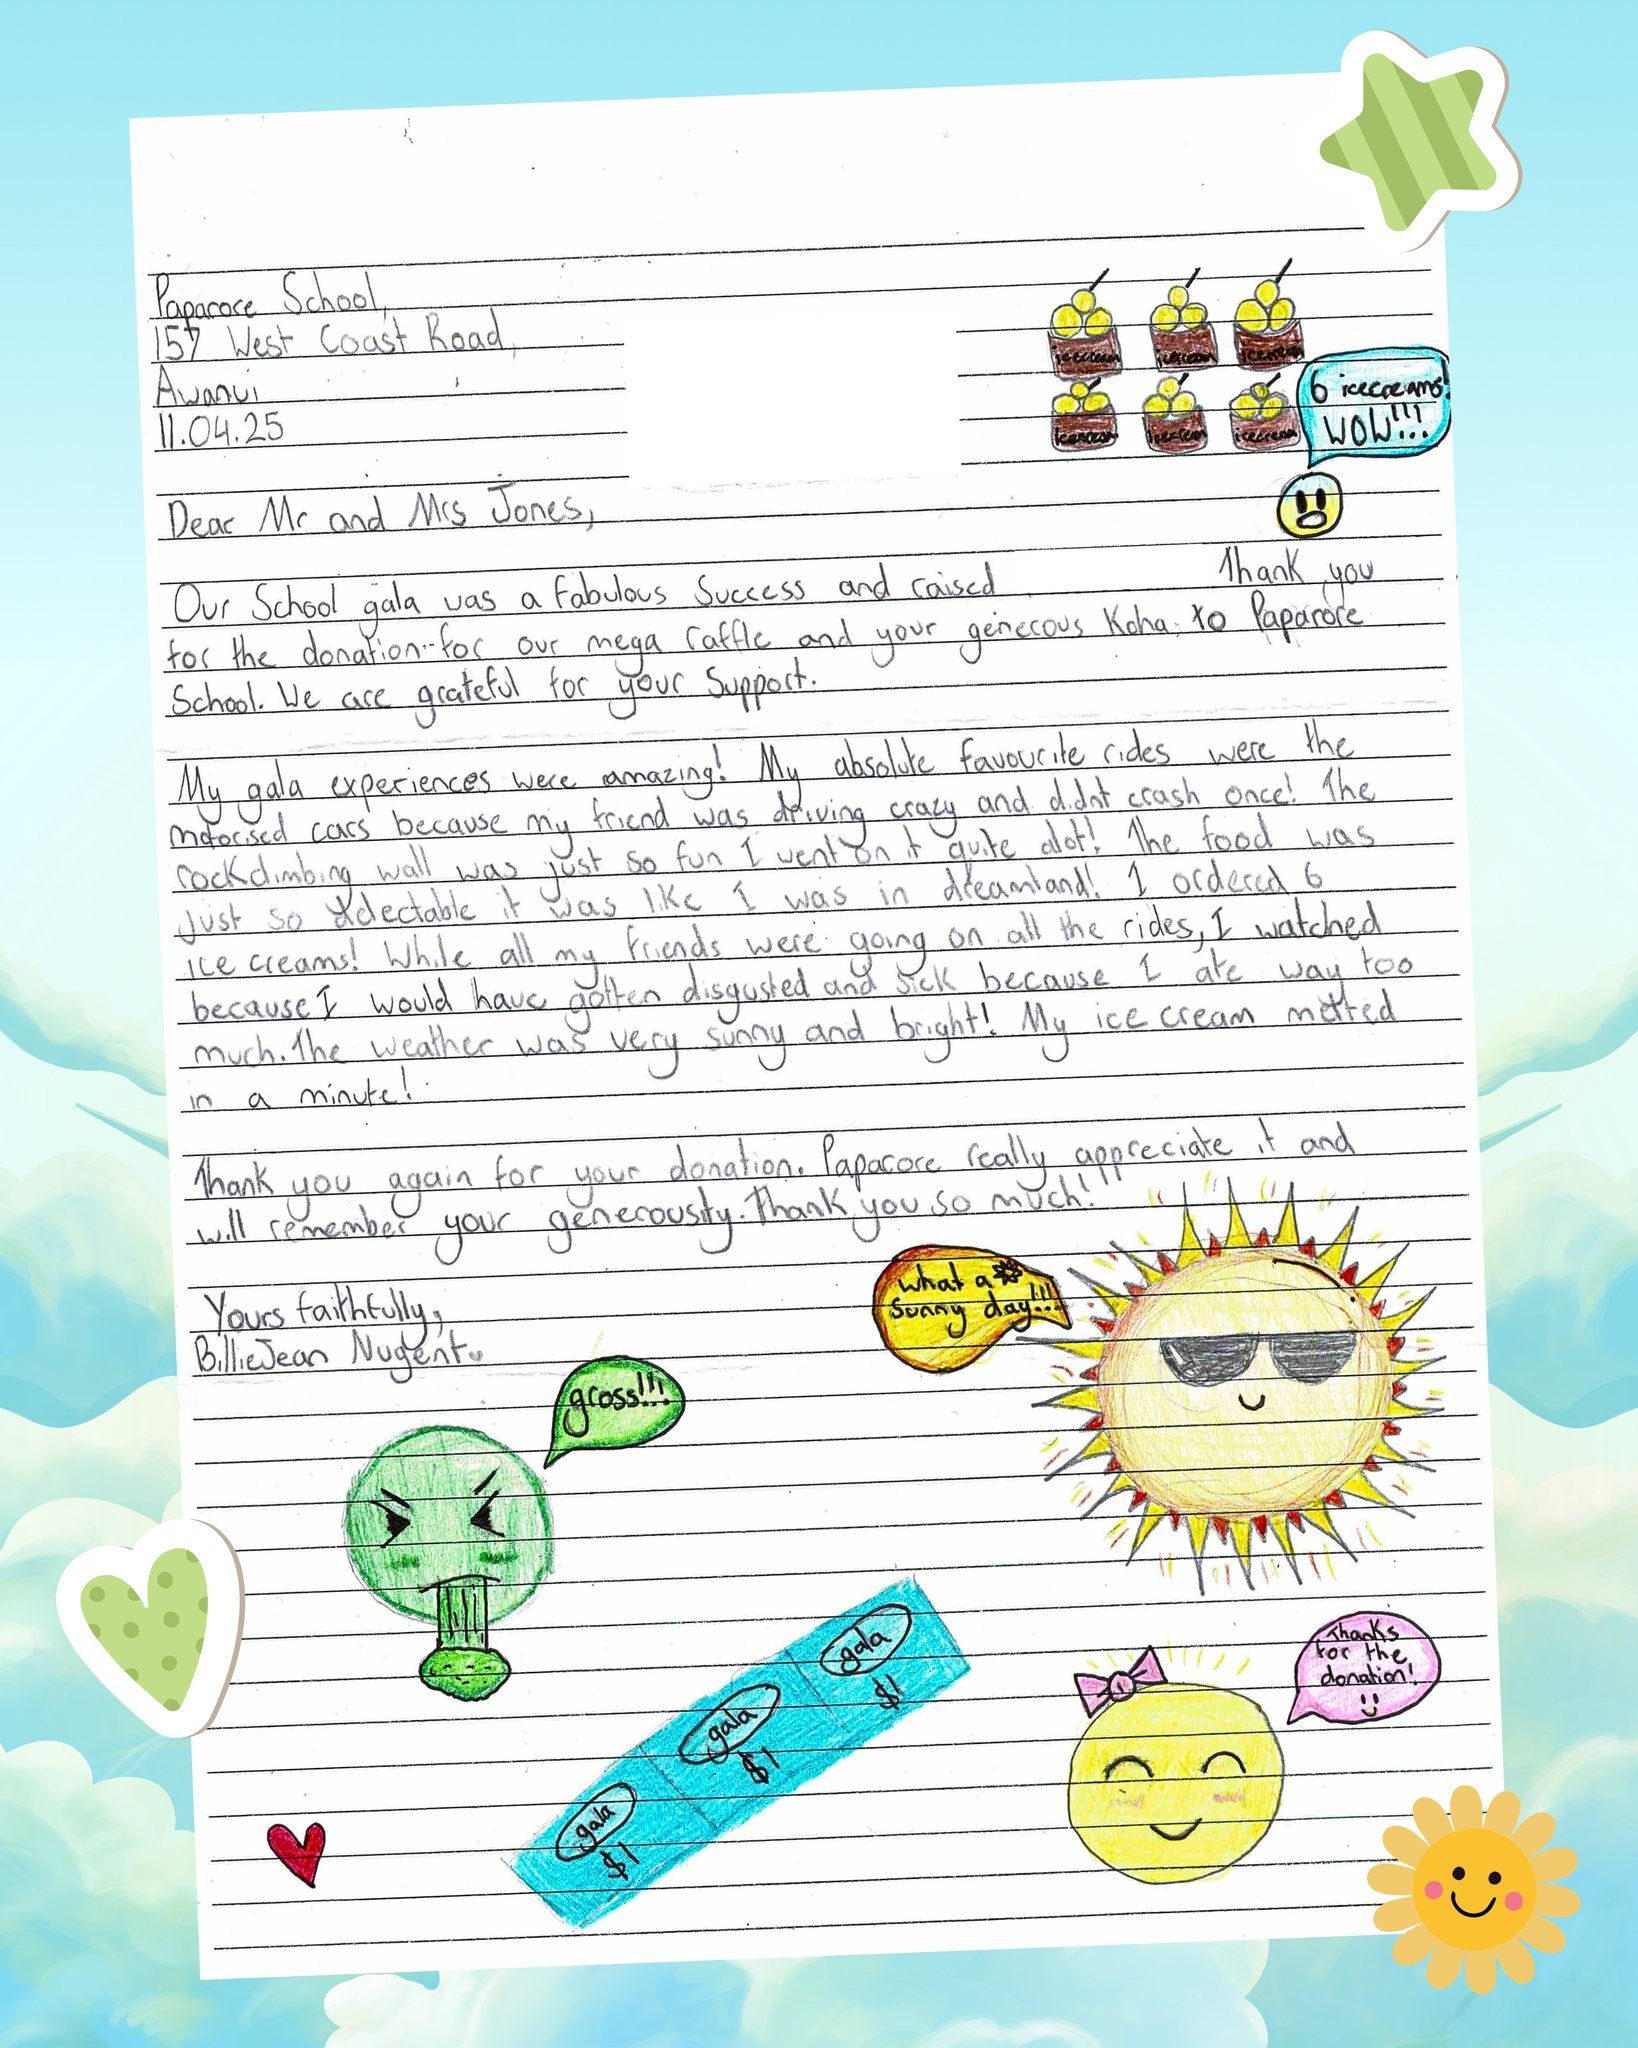 Paparore School,
157 West Coast Road,
Awanui
11.04.25
icecream icecream icecream
icecream icecream icecream
6 icecreams!
WOW!!!
Dear Mr and Mrs Jones,
Our School gala was a fabulous Success and raised Thank you
for the donation for our mega raffle and your generous Koha to Paparore
School. We are grateful for your Support.
My gala experiences were amazing! My absolute favourite rides were the
motorised cars because my friend was driving crazy and didnt crash once! The
rockclimbing wall was just so fun I went on it quite alot! The food was
just so delectable it was like I was in dreamland! I ordered 6
ice creams! While all my friends were going on all the rides, I watched
because I would have gotten disgusted and sick because I ate way too
much. The weather was very sunny and bright! My ice cream melted
in a minute!
Thank you again for your donation. Paparore really appreciate it and
will remember your generousity. Thank you so much!
what a
sunny day!!!
Yours faithfully,
BillieJean Nugent
gross!!!
gala
$1
gala
$1
gala
$1
Thanks
for the
donation!